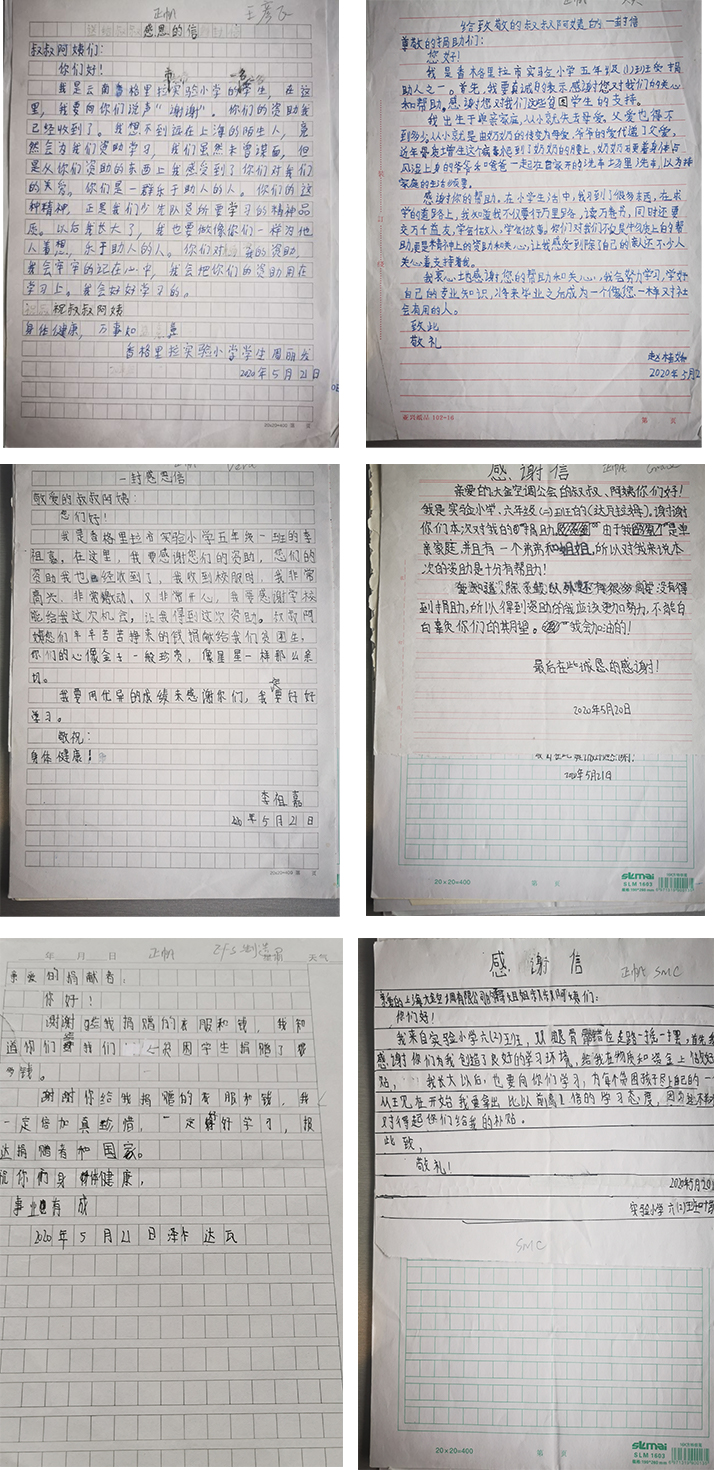 正帆
感恩的信
叔叔阿姨们:
你们好!
我是云南香格里拉实验小学的学生,在这
里,我要向你们说声“谢谢”。你们的资助我
已经收到了。我想不到远在上海的陌生人,竟
然会为我们资助学习,我们虽然未曾谋面,但
是从你们资助的东西上我感受到了你们对我们
的关爱。你们是一群乐于助人的人。你们的这
种精神,正是我们少先队员所要学习的精神品
质。以后我长大了,我也要做像你们一样为他
人着想,乐于助人的人。你们对我的资助,
我会牢牢的记在心中,我会把你们的资助用在
学习上。我会好好学习的。
祝叔叔阿姨
身体健康,万事如意
香格里拉实验小学学生周丽
2020年5月21日
给致敬的叔叔阿姨的一封信
尊敬的捐助们:
您好!
我是香格里拉市实验小学五年级(1)班受捐
助人之一。首先,我要真诚的表示感谢您对我们的关心
和帮助。感谢您对我们这些贫困学生的支持。
我出生于家庭,从小就失去母爱,父爱也得不
到多少。从小就是由奶奶的传变为母爱,爷爷的爱代替了父爱,
近年骨质增生这个病毒爬到了奶奶的腰上,奶奶
家庭的生活
感谢你的帮助,在小学生活中,我习到了很多东西,在求
学的道路上,我知道我不仅要行万里路,读万卷书,同时还要
交万千益友,学会做人,学会做事。你们对我们不仅是物质上的帮
助,更是精神上的资助和关心,让我感受到除了自己的家还有不少人
关心着,支持着我。
我衷心地感谢,您的帮助和关心,我会努力学习,学好
自己的专业知识,将来毕业之后成为一个像您一样对社
会有用的人。
致此
敬礼
2020年5月2
一封感恩信
敬爱的叔叔阿姨:
您们好!
我是香格里拉市实验小学五年级一班的李
祖嘉。在这里,我要感谢您们的资助,您们的
资助我也已经收到了,我收到校服时,我非常
高兴,非常激动,又非常开心,我要感谢学校
能给我这次机会,让我得到这次资助。叔叔阿
姨您们辛辛苦苦挣来的钱捐献给我们贫困生,
你们的心像金子一般珍贵,像星星一样那么亲
切。
我要用优异的成绩来感谢你们,我要好好
学习。
敬祝:
身体健康!
李祖嘉
2020年5月21日
感谢信
亲爱的大金空调公会的叔叔、阿姨你们好!
我是实验小学,六年级(二)班的,谢谢
你们本次对我的“捐助”由于我是单
亲家庭,并且有一个弟弟和姐姐,所以对我来说本
次的资助是十分有帮助!
还有很多同学没有得
到捐助,所以得到资助的我应该更加努力,不能白
白辜负你们的其月望。我会加油的!
最后在此诚恳的感谢!
2020年5月20日
2020年5月21日
20×20=400
第 页
SLM 1683
年 月 日
正帆
天气
亲爱的捐献者:
你好!
谢谢给我捐赠的衣服和钱,我知
道你们给我们贫困学生捐赠了很
多钱。
谢谢你给我捐赠的衣服和钱,我
一定倍加真惜,一定好好学习,报
达捐赠者和国家。
祝你们身体健康,
事业有成
2020年5月21日泽仁达瓦
感谢信
正帆 SMC
亲爱的上海大金空调有限公司的哥哥姐姐叔叔阿姨们:
你们好!
我来自实验小学六(2)班,
感谢你们为我创造了良好的学习环境,给我在物质和资金上
贴,我长大以后,也要向你们学习,为每个贫困孩子尽上自己的一
从现在开始我要拿出比以前高1倍的学习态度,因为
对得起你们给我的补贴。
此致,
敬礼!
2020年5月20
实验小学六(2)班
SMC
20×20=400
第 页
SLM 1683